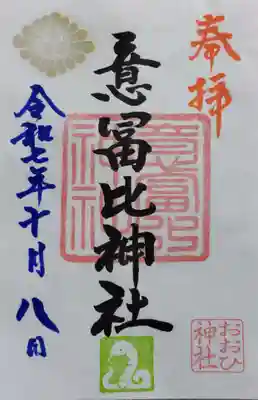 奉拝
意冨比神社
意冨比
神社
令和七年十月八日
おおひ
神社